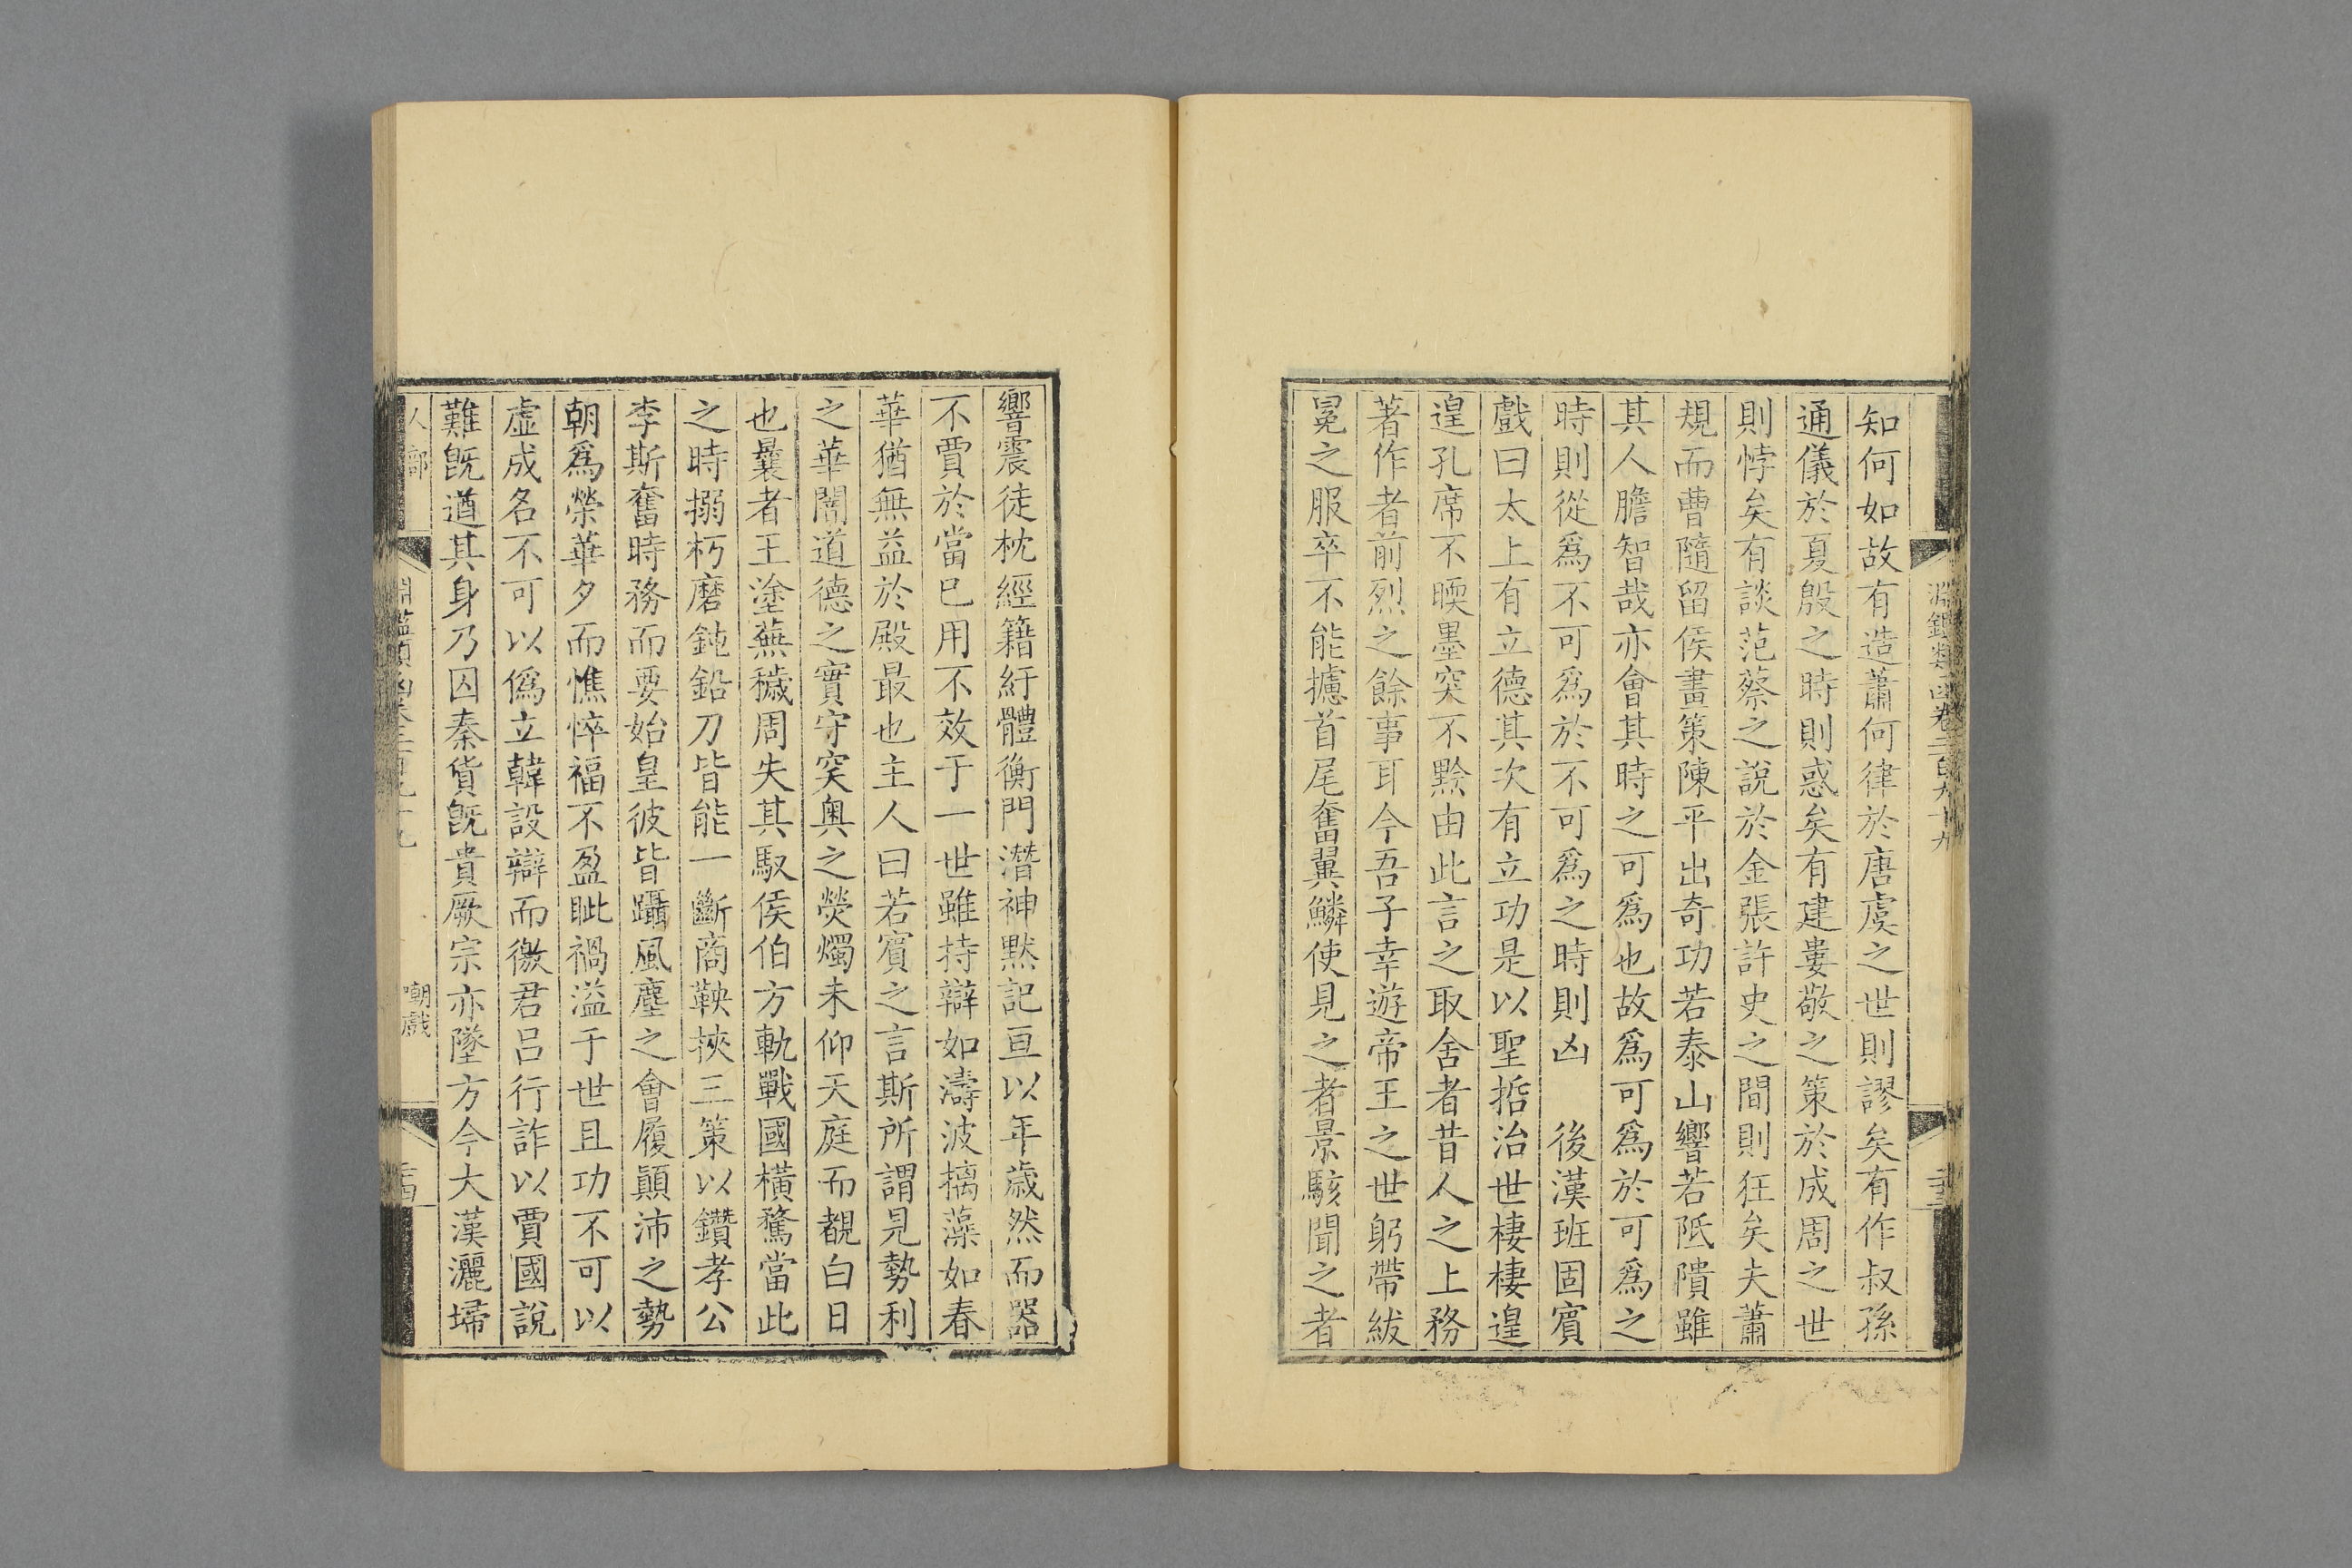 淵鑑類函卷二百九十九
知何如故有造蕭何律於唐虞之世則謬矣有作叔孫
通儀於夏殷之時則惑矣有建婁敬之策於成周之世
則悖矣有談范蔡之說於金張許史之間則狂矣夫蕭
規而曹隨留侯畫策陳平出奇功若泰山響若阺隤雖
其人膽智哉亦會其時之可爲也故爲可爲於可爲之
時則從爲不可爲於不可爲之時則凶 後漢班固賓
戲曰太上有立德其次有立功是以聖哲治世棲棲遑
遑孔席不暝墨突不黔由此言之取舍者昔人之上務
著作者前烈之餘事耳今吾子幸遊帝王之世躬帶紱
冕之服卒不能攄首尾奮翼鱗使見之者景駭聞之者
響震徒枕經籍紆體衡門潛神默記亘以年歲然而器
不賈於當巳用不效于一世雖持辯如濤波摛藻如春
華猶無益於殿最也主人曰若賓之言斯所謂見勢利
之華闇道德之實守突奧之熒燭未仰天庭而覩白日
也曩者王塗蕪穢周失其馭侯伯方軌戰國橫騖當此
之時搦朽磨鈍鉛刀皆能一斷商鞅挾三策以鑽孝公
李斯奮時務而要始皇彼皆躡風塵之會履顚沛之勢
朝爲榮華夕而憔悴福不盈眦禍溢于世且功不可以
虛成名不可以僞立韓設辯而徼君呂行詐以賈國說
難旣遒其身乃囚秦貨旣貴厥宗亦墜方今大漢灑埽
人部
嘲戲